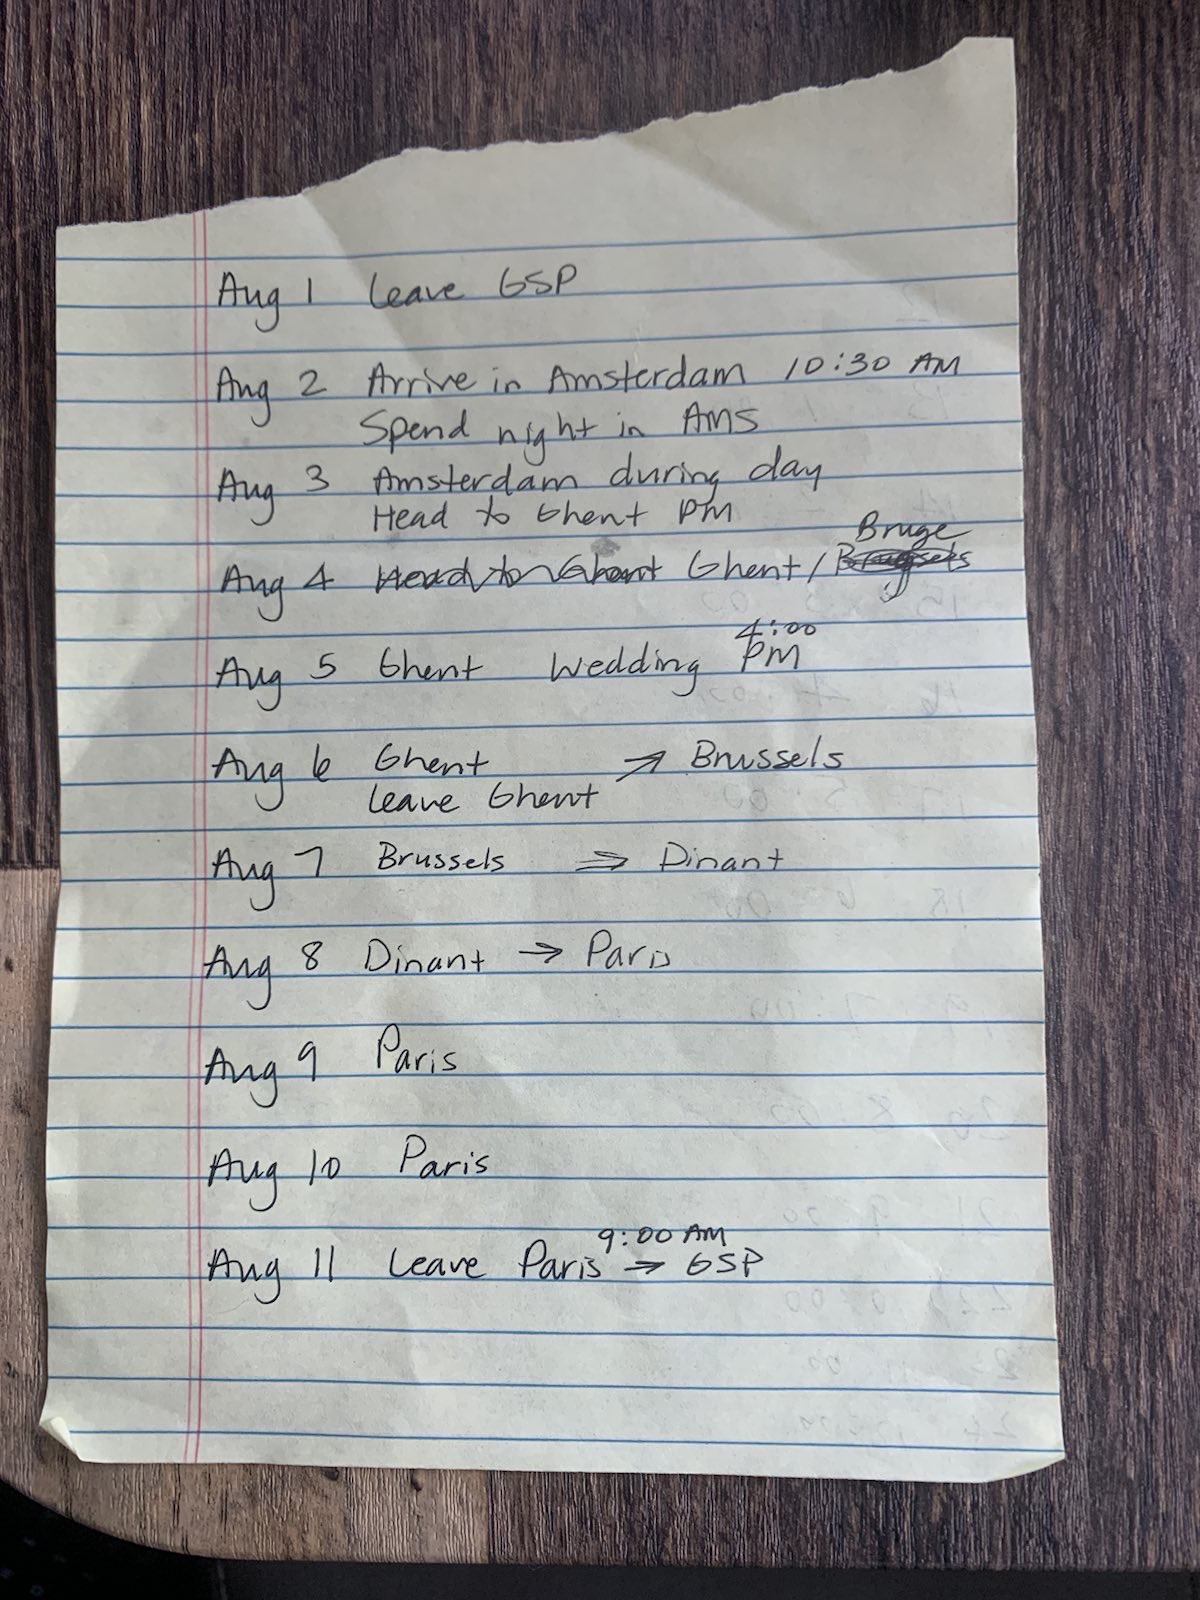 Aug 1 Leave GSP
Aug 2 Arrive in Amsterdam 10:30 AM
Spend night in AMS
Aug 3 Amsterdam during day
Head to Ghent PM
Bruge
Aug 4 Head to Ghent Ghent/
4:00
Aug 5 Ghent Wedding PM
Aug 6 Ghent → Brussels
Leave Ghent
Aug 7 Brussels ⇒ Dinant
Aug 8 Dinant → Paris
Aug 9 Paris
Aug 10 Paris
9:00 AM
Aug 11 Leave Paris → GSP